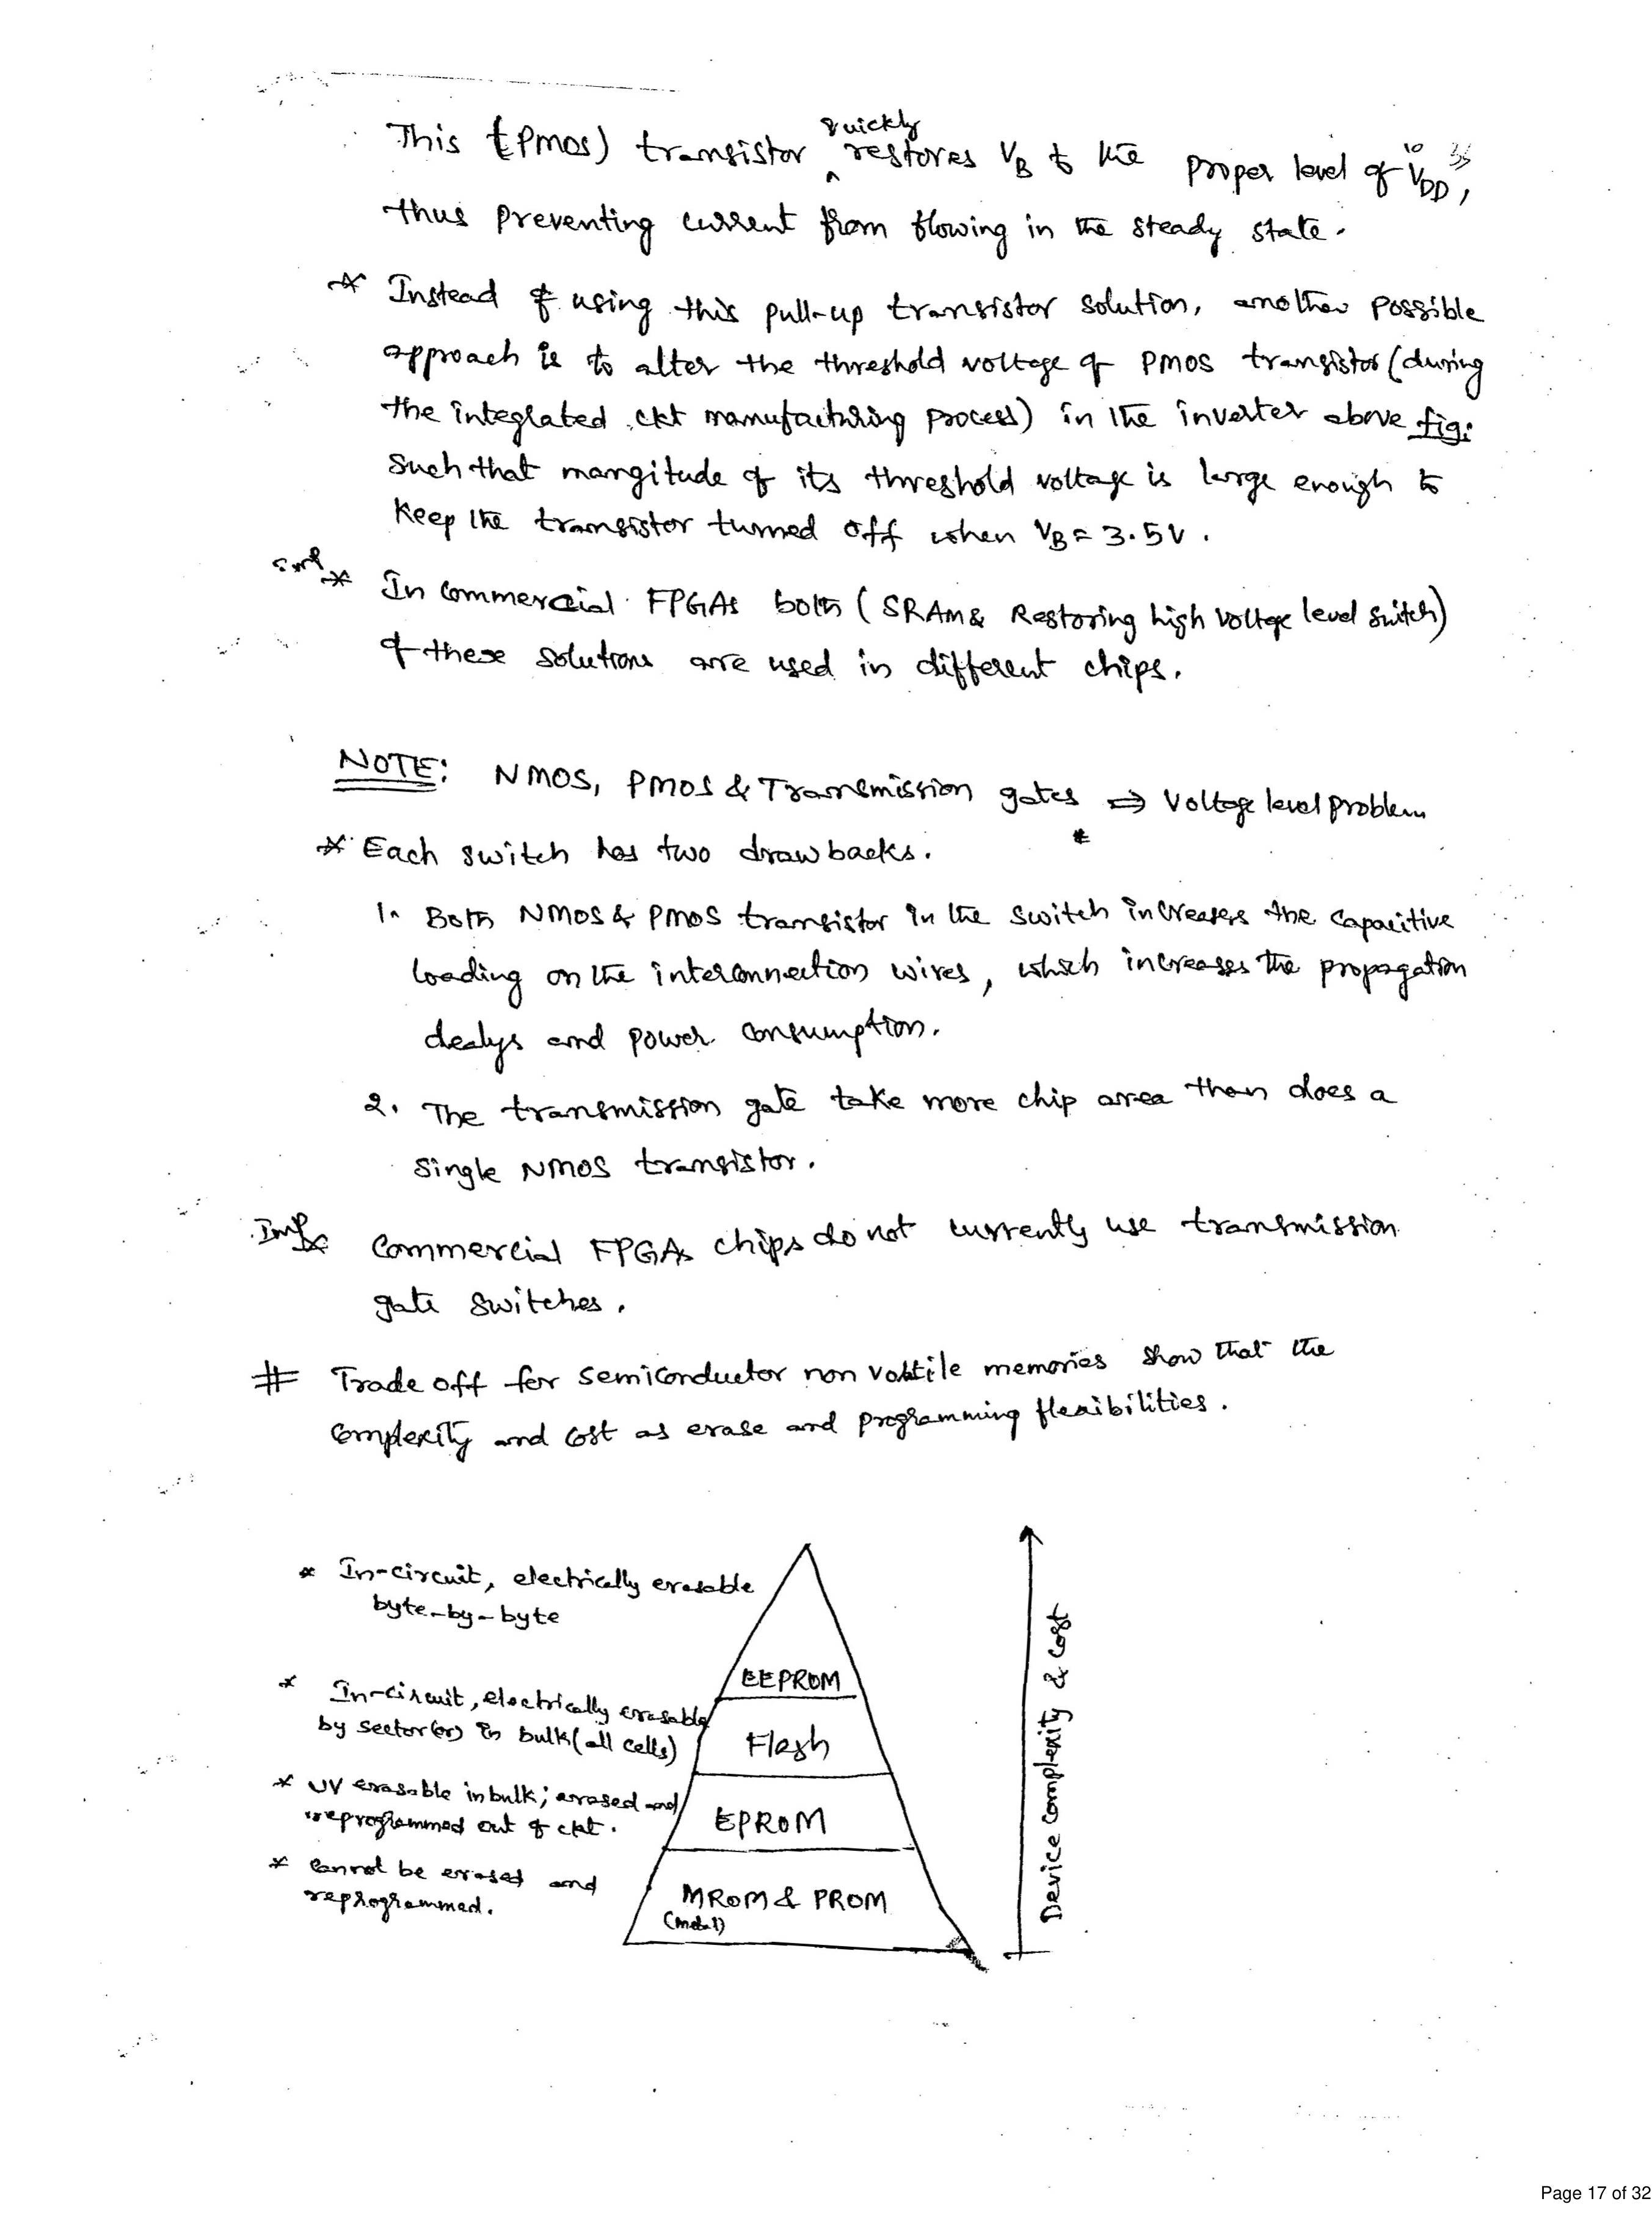 This (PMOS) transistor quickly restores VB to the proper level of "VDD",
thus preventing current from flowing in the steady state.
* Instead of using this pull-up transistor solution, another possible
approach is to alter the threshold voltage of PMOS transistor (during
the integrated ckt manufacturing process) in the inverter above fig:
Such that mangitude of its threshold voltage is large enough to
keep the transistor turned off when VB = 3.5V.
* In commercial FPGAs both (SRAM & Restoring high voltage level switch)
of these solutions are used in different chips.
NOTE: NMOS, PMOS & Transmission gates ⇒ Voltage level problem
* Each switch has two drawbacks.
1. Both NMOS & PMOS transistor in the switch increases the capacitive
loading on the interconnection wires, which increases the propagation
dealys and power consumption.
2. The transmission gate take more chip area than does a
single NMOS transistor.
Imp * Commercial FPGAs chips do not currently use transmission
gate switches.
# Trade off for semiconductor non volatile memories show that the
complexity and cost as erase and programming flexibilities.
* In-circuit, electrically erasable
byte-by-byte
EEPROM
* In-circuit, electrically erasable
by sector (or) in bulk (all cells)
Flash
* UV erasable in bulk; erased and
reprogrammed out of ckt.
EPROM
* Cannot be erased and
reprogrammed.
MROM & PROM
Device Complexity & Cost
Page 17 of 32